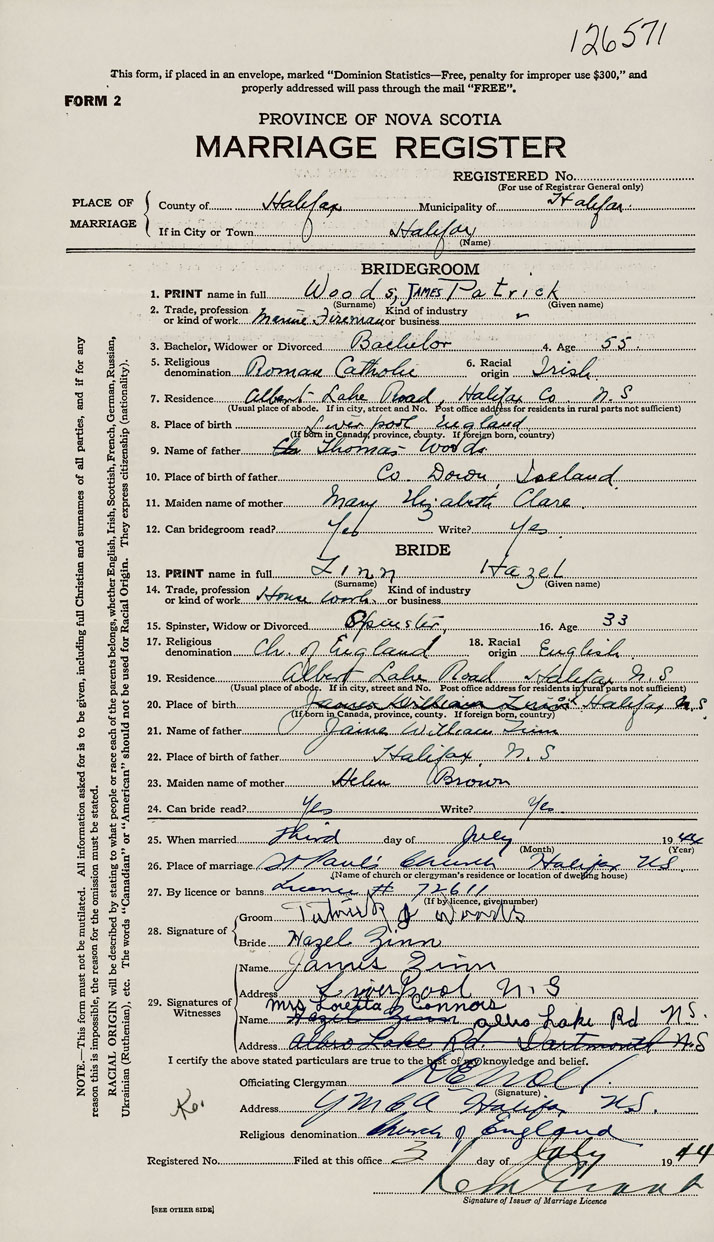 126571
This form, if placed in an envelope, marked "Dominion Statistics—Free, penalty for improper use $300," and
properly addressed will pass through the mail "FREE".
FORM 2
PROVINCE OF NOVA SCOTIA
MARRIAGE REGISTER
REGISTERED No.
(For use of Registrar General only)
PLACE OF MARRIAGE
County of Halifax Municipality of Halifax
If in City or Town Halifax
(Name)
BRIDEGROOM
1. PRINT name in full Woods, JAMES Patrick
(Surname) (Given name)
2. Trade, profession or kind of work Marine Fireman Kind of industry or business "
3. Bachelor, Widower or Divorced Bachelor 4. Age 55
5. Religious denomination Roman Catholic 6. Racial origin Irish
7. Residence Albert Lake Road, Halifax Co N.S
(Usual place of abode. If in city, street and No. Post office address for residents in rural parts not sufficient)
8. Place of birth Liverpool England
(If born in Canada, province, county. If foreign born, country)
9. Name of father Thomas Woods
10. Place of birth of father Co. Down, Ireland
11. Maiden name of mother Mary Elizabeth Clare
12. Can bridegroom read? Yes Write? Yes
BRIDE
13. PRINT name in full Zinn Hazel
(Surname) (Given name)
14. Trade, profession or kind of work House work Kind of industry or business
15. Spinster, Widow or Divorced Spinster 16. Age 33
17. Religious denomination Ch. of England 18. Racial origin English
19. Residence Albert Lake Road Halifax N.S
(Usual place of abode. If in city, street and No. Post office address for residents in rural parts not sufficient)
20. Place of birth James William Zinn Halifax N.S.
(If born in Canada, province, county. If foreign born, country)
21. Name of father James William Zinn
22. Place of birth of father Halifax, N.S
23. Maiden name of mother Helen Brown
24. Can bride read? Yes Write? Yes
25. When married third day of July 1944
(Month) (Year)
26. Place of marriage St Paul's Church Halifax NS
(Name of church or clergyman's residence or location of dwelling house)
27. By licence or banns Licence # 72611
(If by licence, give number)
28. Signature of
Groom Patrick J Woods
Bride Hazel Zinn
29. Signatures of Witnesses
Name James Zinn
Address Liverpool N.S
Mrs Loretta Connors
Name Hazel Zinn albro Lake Rd N.S.
Address Albro Lake Rd. Dartmouth N.S
I certify the above stated particulars are true to the best of my knowledge and belief.
Officiating Clergyman
(Signature)
Address YMCA Halifax NS.
Religious denomination Church of England
Registered No. Filed at this office 3 day of July 1944
Signature of Issuer of Marriage Licence
[SEE OTHER SIDE]
NOTE.—This form must not be mutilated. All information asked for is to be given, including full Christian and surnames of all parties, and if for any
reason this is impossible, the reason for the omission must be stated.
RACIAL ORIGIN will be described by stating to what people or race each of the parents belongs, whether English, Irish, Scottish, French, German, Russian,
Ukrainian (Ruthenian), etc. The words "Canadian" or "American" should not be used for Racial Origin. They express citizenship (nationality).